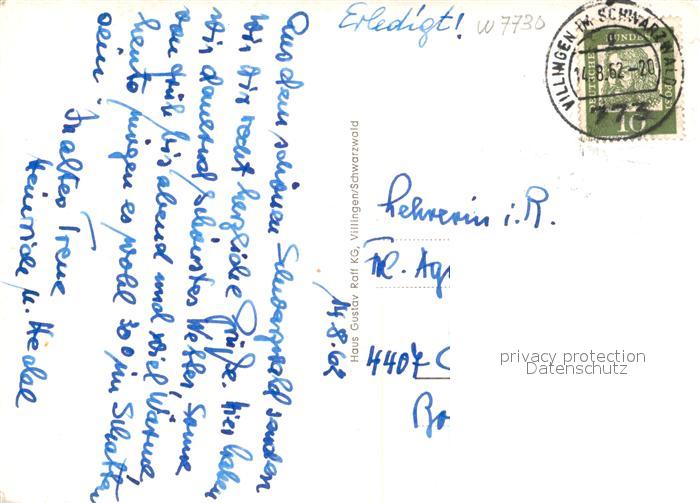 Erledigt!
W 7730
VILLINGEN IM SCHWARZWALD
14.8.62-20
773
DEUTSCHE BUNDESPOST
10
14.8.62
Aus dem schönen Schwarzwald senden
wir Dir recht herzliche Grüße. Hier haben
wir dauernd schönstes Wetter, Sonne
von früh bis abend und viel Wärme
heute mögen es wohl 30° im Schatten
sein.
In alter Treue
Heinrich u. Hedel
Haus Gustav Raff KG, Villingen/Schwarzwald
Lehrerin i. R.
Frl. Ag
4407
Bo
privacy protection
Datenschutz